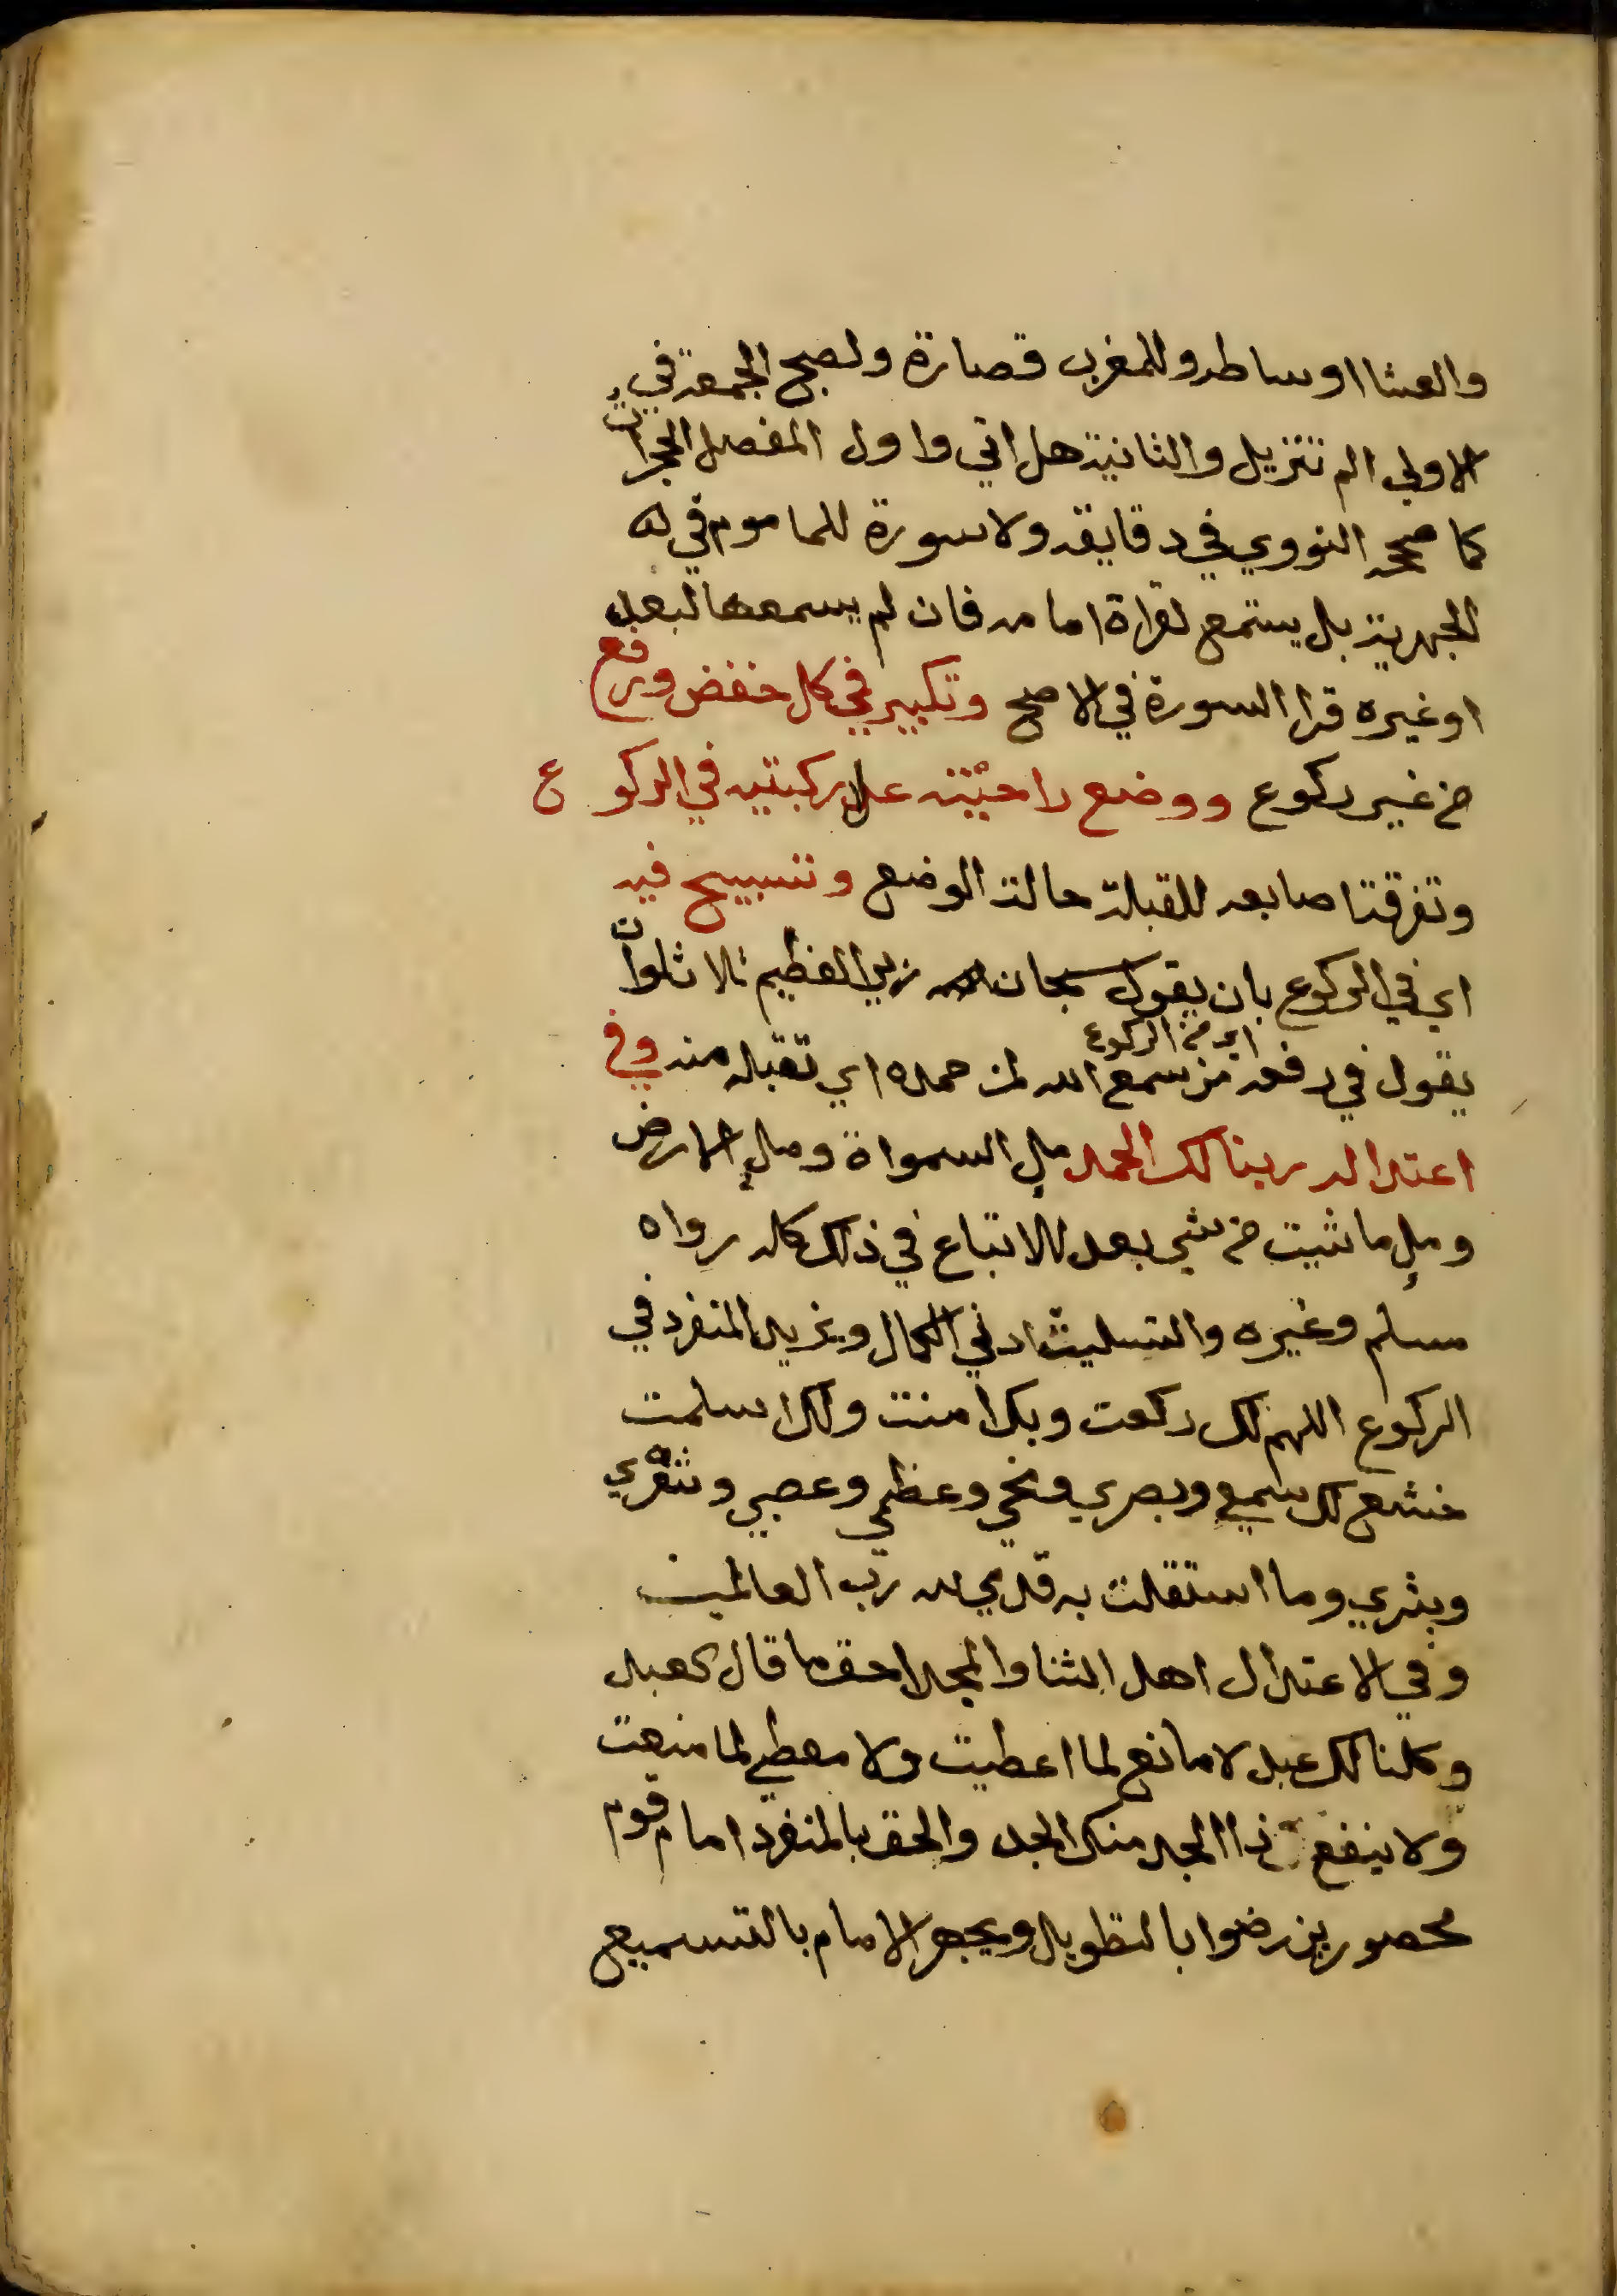 والعشا اوساطه وللمغرب قصارة ولصبح الجمعة في
الاولى الم تنزيل والثانية هل اتي واول المفصل الحجرات
كما صححه النووي في دقايقه ولا سورة للماموم في
الجهرية بل يستمع لقراة امامه فان لم يسمعها لبعد
او غيره قرا السورة في الاصح وتكبير في كل خفض ورفع
من غير ركوع ووضع راحتيه على ركبتيه في الركوع
وتفرقة اصابعه للقبلة حالة الوضع وتسبيح فيه
اي في الركوع بان يقول سبحان ربي العظيم ثلاثا وان
يقول في رفعه من اي من الركوع سمع الله لمن حمده اي تقبله منه وفي
اعتداله ربنا لك الحمد مل السمواة ومل الارض
ومل ما شيت من شي بعد للاتباع في ذلك كله رواه
مسلم وغيره والتسليث ادني الكمال ويزيد المنفرد في
الركوع اللهم لك ركعت وبك امنت ولك اسلمت
خشع لك سمعي وبصري ومخي وعظمي وعصبي وشعري
وبشري وما استقلت به قدمي لله رب العالمين
وفي الاعتدال اهل الثنا والمجد احق ما قال العبد
وكلنا لك عبد لا مانع لما اعطيت ولا معطي لما منعت
ولا ينفع ذا الجد منك الجد والحق بالمنفرد امام قوم
محصورين رضوا بالتطويل ويجهر الامام بالتسميع